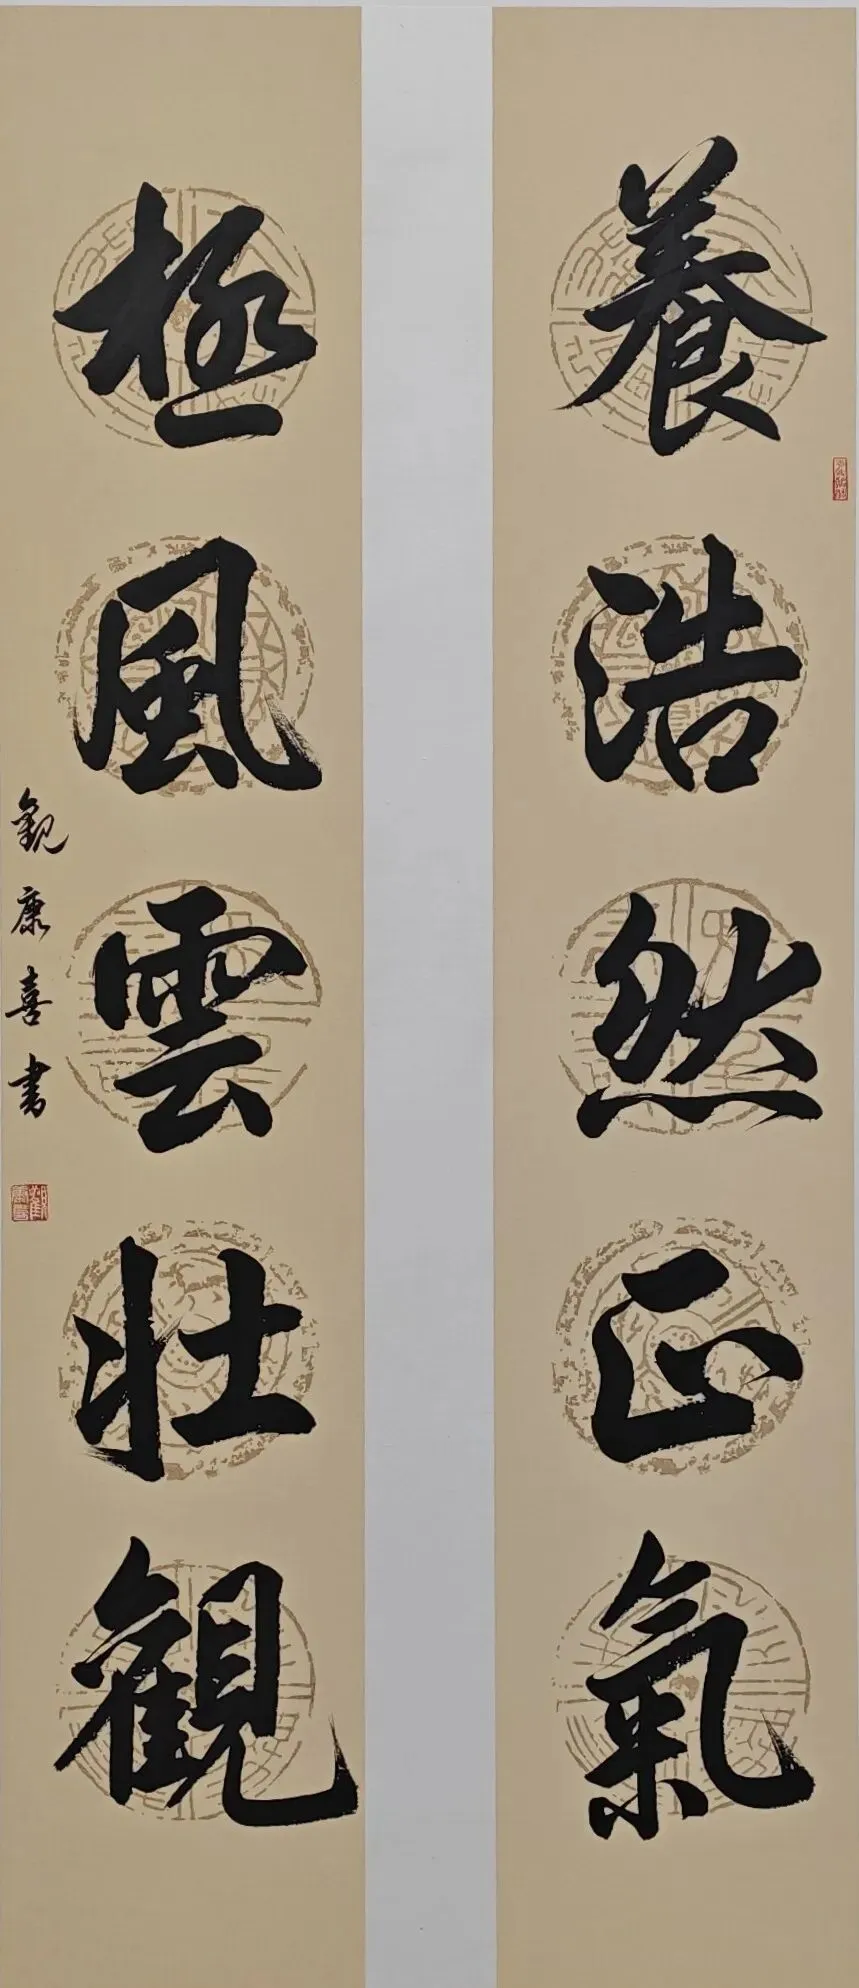 養浩然正氣
極風雲壯觀
觀康喜書